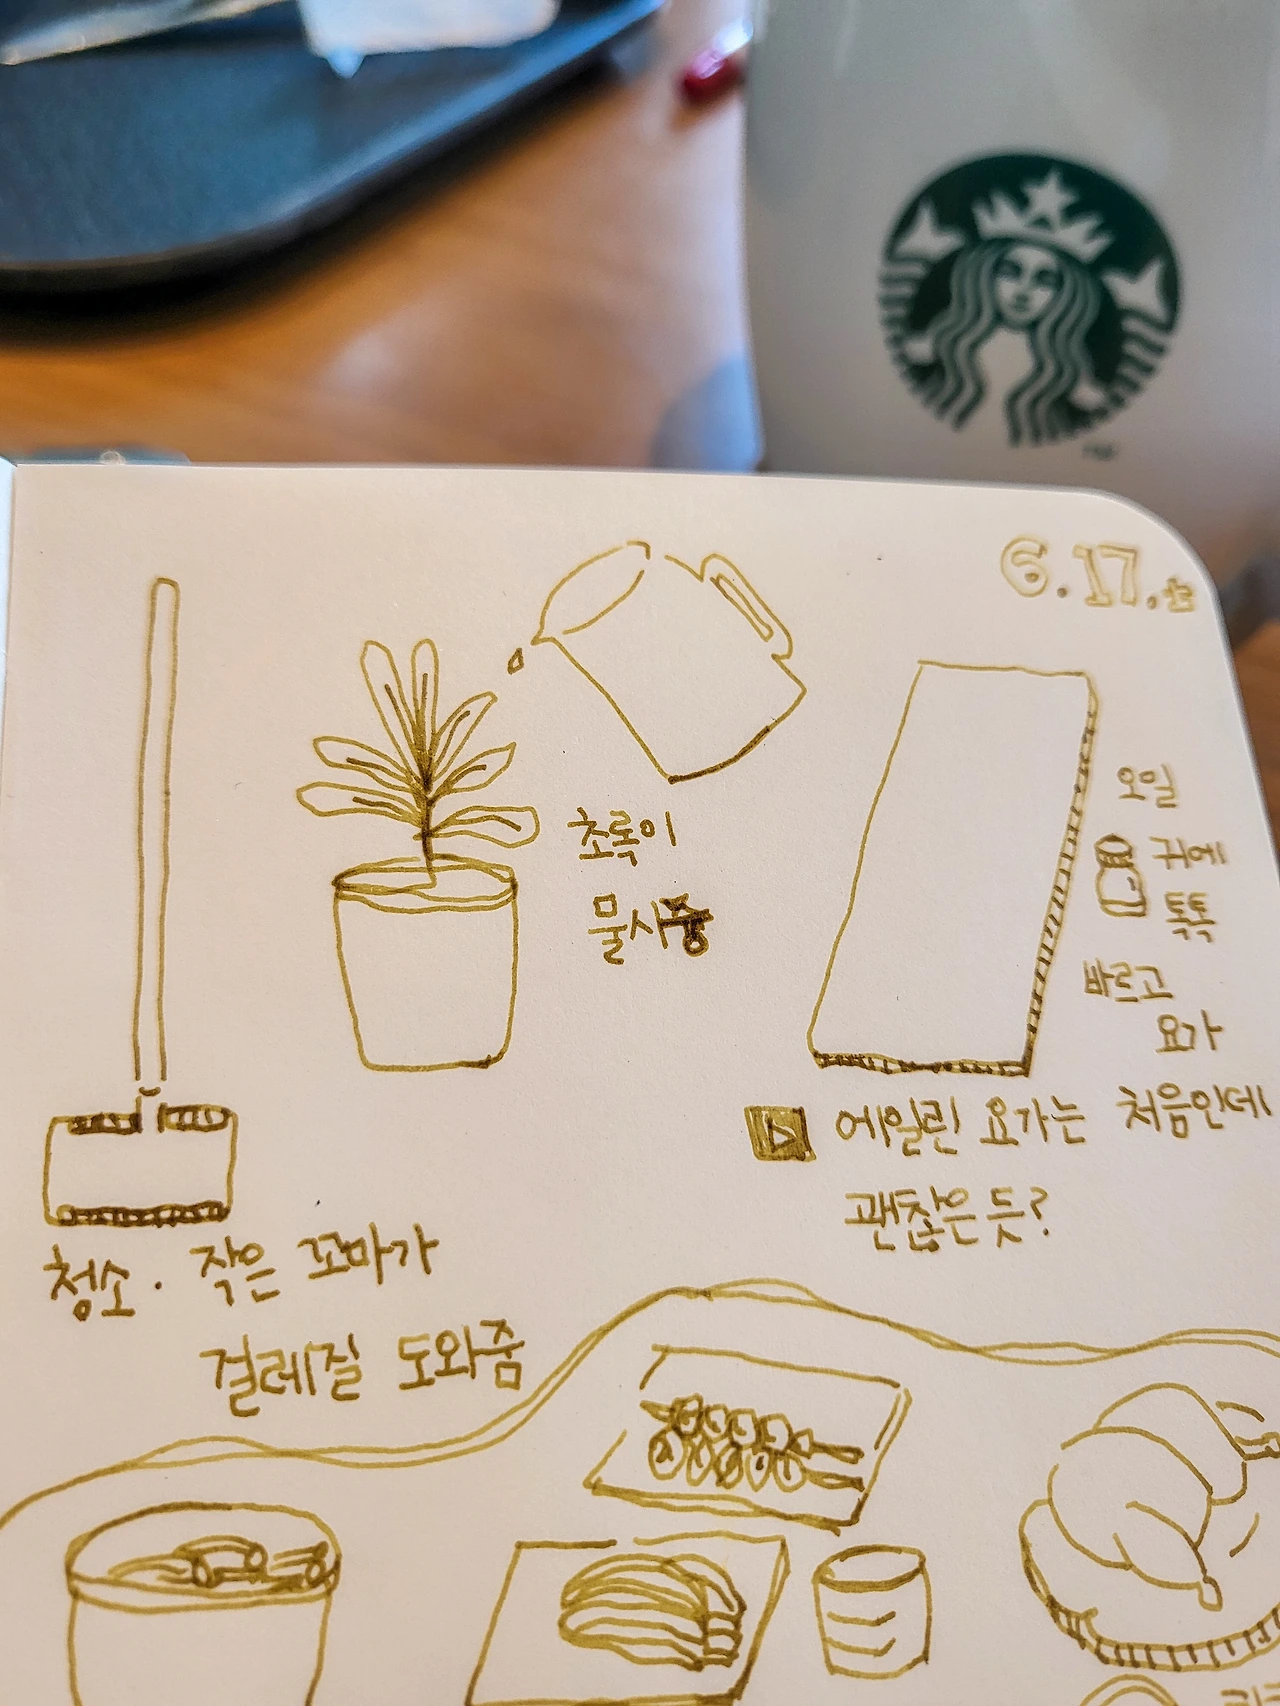 6.17.토
초록이
물시중
오일
귀에
톡톡
바르고
요가
에일린 요가는 처음인데
괜찮은 듯?
청소. 작은 꼬마가
걸레질 도와줌